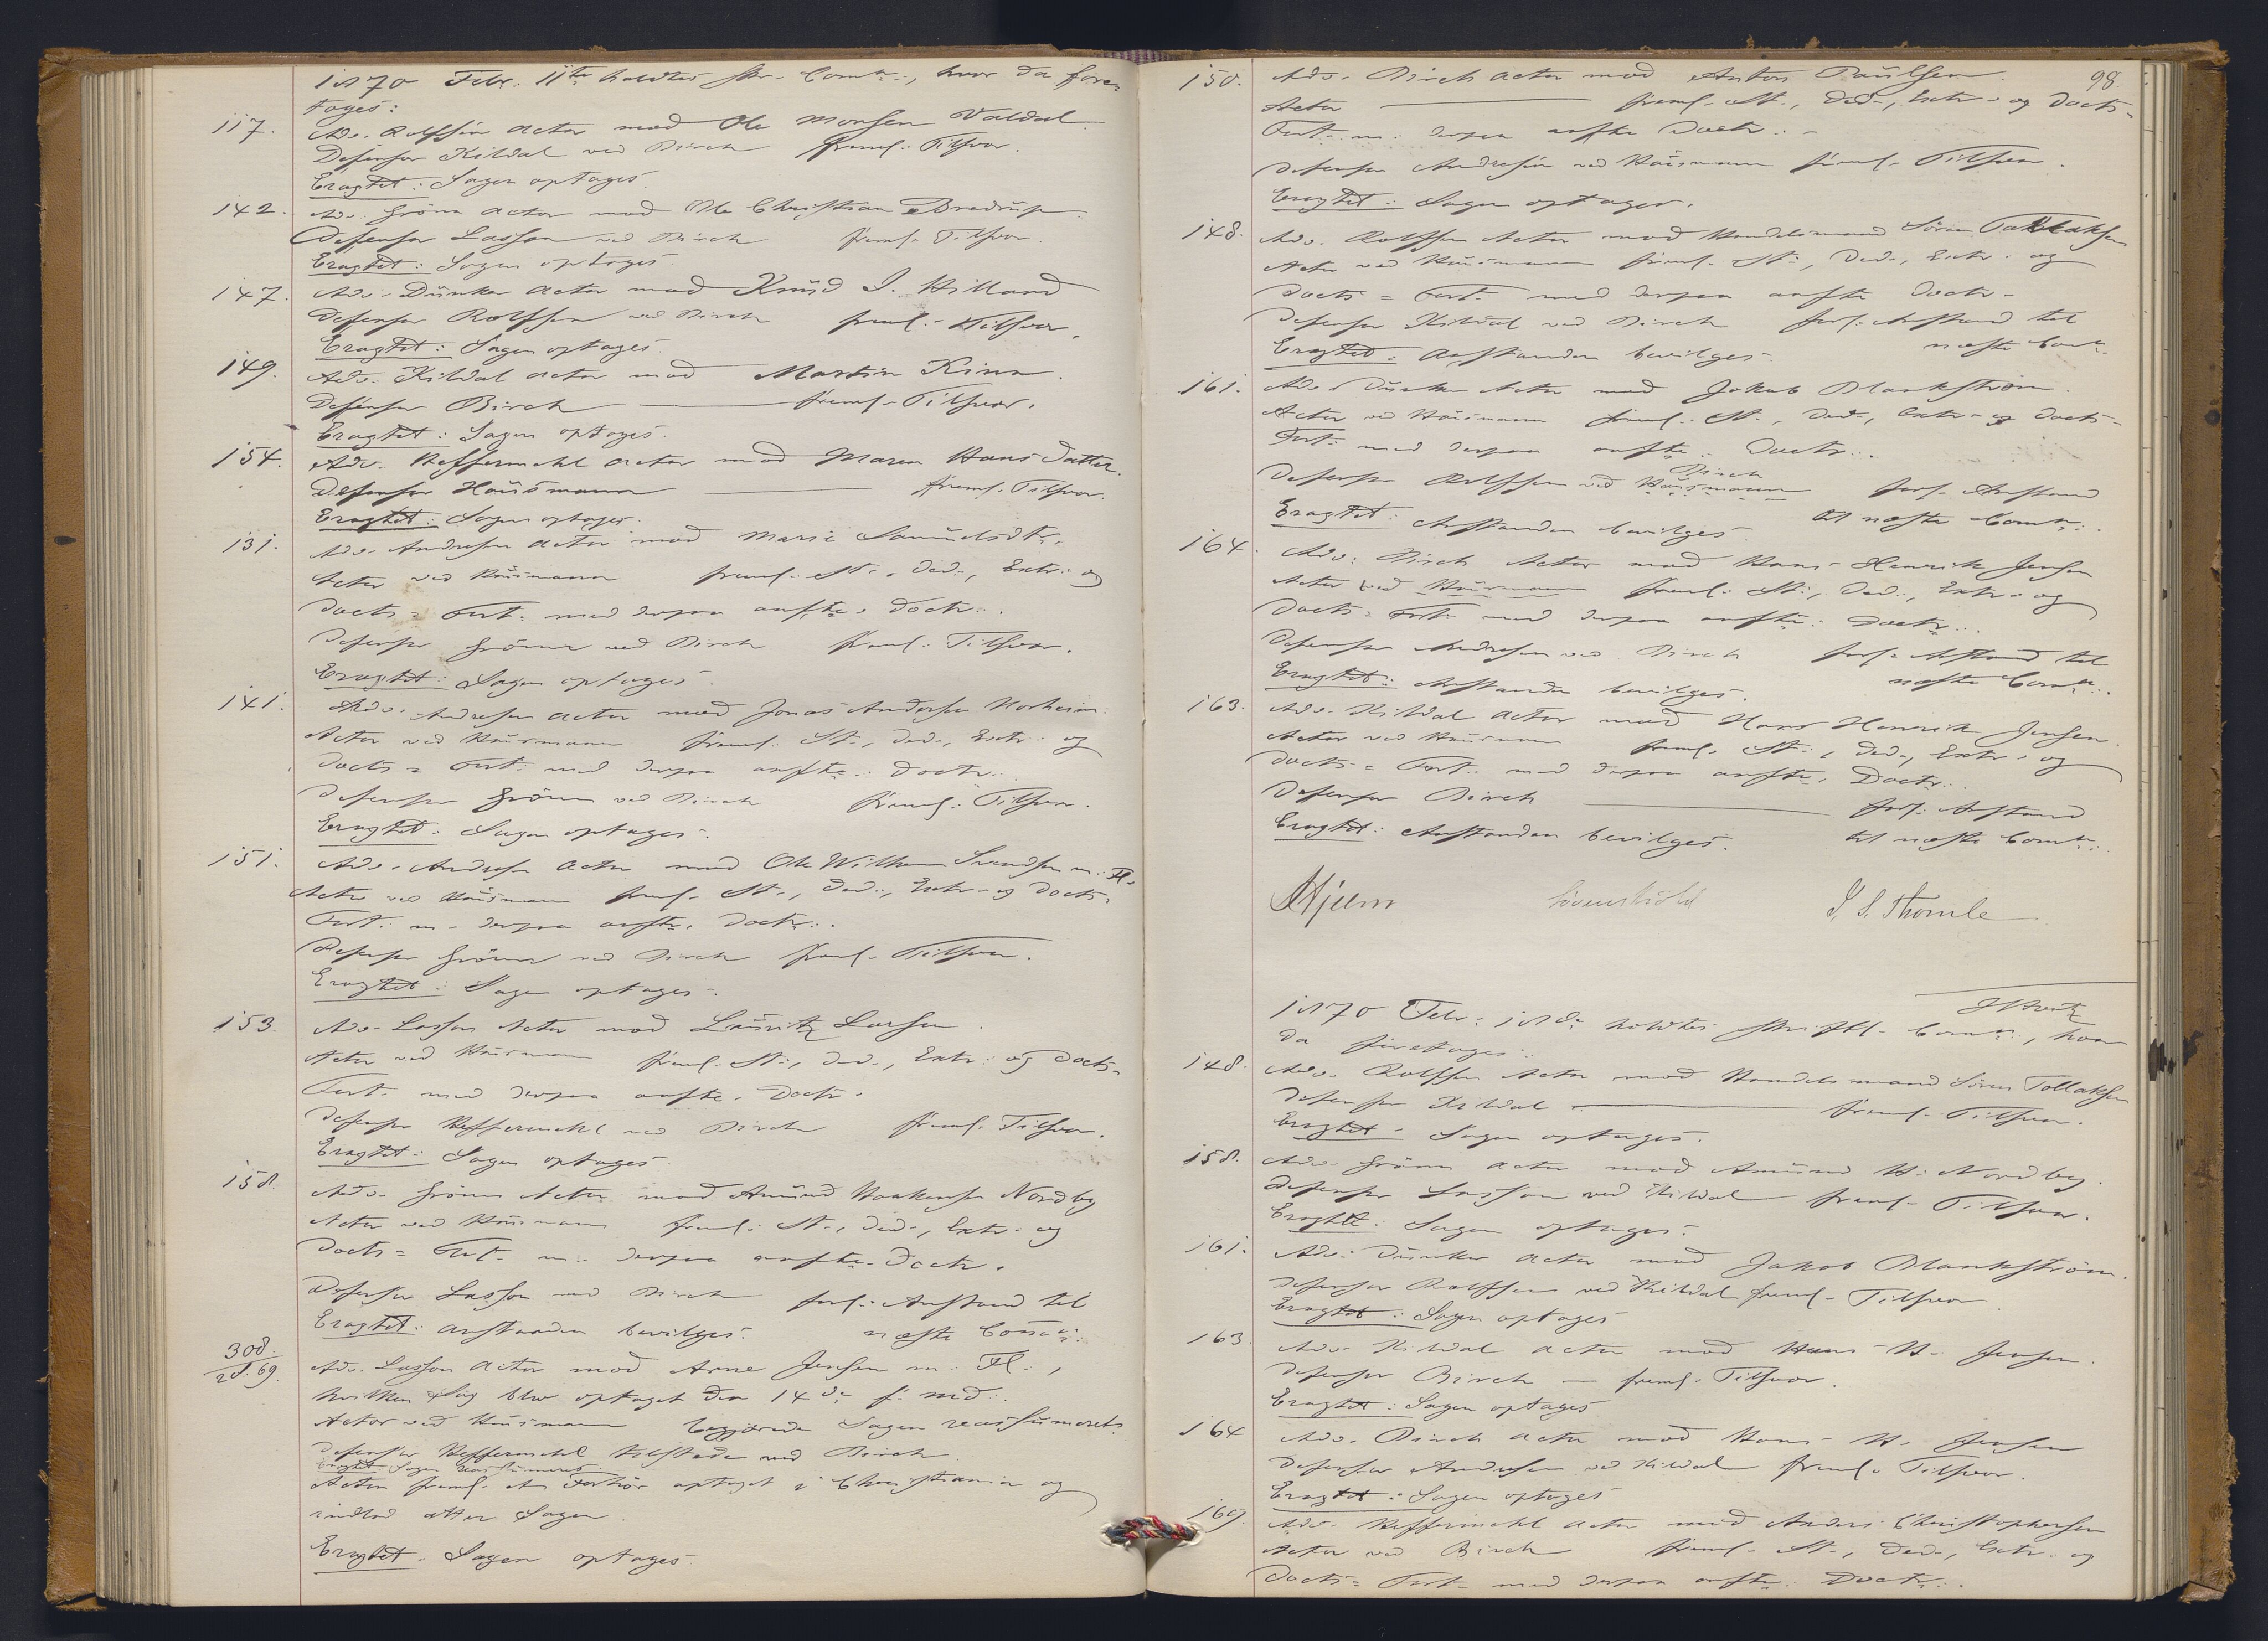 1870 Febr. 11te holdtes skr. Comn:, hvor da fore-
toges:
117. Adv. Rolfsen Actor mod Ole Monsen Valdal.
Defensor Kildal ved Birch freml. Tilsvar.
Eragtet: Sagen optages.
142. Adv. Grönn Actor mod Ole Christian Bredrup.
Defensor Lasson ved Birch freml. Tilsvar.
Eragtet: Sagen optages.
147. Adv. Dunker Actor mod Knud I. Hilland
Defensor Rolfsen ved Birch freml. Tilsvar.
Eragtet: Sagen optages.
149. Adv. Kildal Actor mod Martin Kinn.
Defensor Birch freml. Tilsvar.
Eragtet: Sagen optages.
154. Adv. Keffermehl Actor mod Maren Hans datter.
Defensor Hausmann freml. Tilsvar.
Eragtet: Sagen optages.
131. Adv. Andresen Actor mod Marie Samuelsdtr.
Actor ved Hausmann freml. St., Ded., Extr. og
Docts= Fort. med derpaa ansfte. Doctr.
Defensor Grönn ved Birch freml. Tilsvar.
Eragtet: Sagen optages.
141. Adv. Andresen Actor mod Jonas Andersen Norheim.
Actor ved Hausmann freml. St., Ded., Extr. og
Docts= Fort. med derpaa ansfte. Doctr.
Defensor Grönn ved Birch freml. Tilsvar.
Eragtet: Sagen optages.
151. Adv. Andresen Actor mod Ole Wilhem Svendsen m. Fl.
Actor ved Hausmann freml. St., Ded., Extr. og Docts=
Fort. m. derpaa ansfte. Doctr.
Defensor Grönn ved Birch freml. Tilsvar.
Eragtet: Sagen optages.
153. Adv. Lasson Actor mod Lauritz Larsen.
Actor ved Hausmann freml. St., Ded., Extr. og Docts=
Fort. med derpaa ansfte. Doctr.
Defensor Keffermehl ved Birch freml. Tilsvar.
Eragtet: Sagen optages.
158. Adv. Grönn Actor mod Amund Haakensen Nordby
Actor ved Hausmann freml. St., Ded., Extr. og
Docts= Fort. m. derpaa ansfte. Doctr.
Defensor Lasson ved Birch forl. Anstand til
Eragtet: Anstanden bevilges. næste Comn:
308./28. 69. Adv. Lasson Actor mod Arne Jensen m. Fl.,
hvilken Sag blev optaget den 14de f. Md.
Actor ved Hausmann begjærede Sagen reassumeret.
Defensor Keffermehl tilstede ved Birch
Eragtet Sagen reassumeres.
Actor freml. et Forhör optaget i Christiania og
indlod atter Sagen.
Eragtet. Sagen optages.
98.
150. Adv. Birch Actor mod Anton Paulsen.
Actor freml. St., Ded., Extr. og Docts=
Fort. m. derpaa ansfte Doctr.
Defensor Andresen ved Hausmann freml. Tilsvar.
Eragtet: Sagen optages.
148. Adv. Rolfsen Actor mod Handelsmand Sören Tollaksen
Actor ved Hausmann freml. St., Ded., Extr. og
Docts= Fort. med derpaa ansfte Doctr.
Defensor Kildal ved Birch forl. Anstand til
Eragtet: Anstanden bevilges. næste Comn:
161. Adv. Dunker Actor mod Jakob Blankström.
Actor ved Hausmann freml. St., Ded., Extr. og Docts=
Fort. med derpaa ansfte. Doctr.
Birch
Defensor Rolfsen ved Hausmann forl. Anstand
Eragtet: Anstanden bevilges. til næste Comn:
164. Adv. Birch Actor mod Hans Henrik Jensen
Actor ved Hausmann freml. St., Ded., Extr. og
Docts= Fort. med derpaa ansfte. Doctr.
Defensor Andresen ved Birch forl. Anstand til
Eragtet: Anstanden bevilges. næste Comn:
163. Adv. Kildal Actor mod Hans Henrik Jensen.
Actor ved Hausmann freml. St., Ded., Extr. og
Docts= Fort. med derpaa ansfte. Doctr.
Defensor Birch forl. Anstand
Eragtet: Anstanden bevilges. til næste Comn:
Hjelm Lövenskiold I. S. Thomle
1870 Febr. 18de holdtes skriftl. Comn:, hvor
da foretoges:
148. Adv. Rolfsen Actor mod Handelsmand Sören Tollaksen
Defensor Kildal freml. Tilsvar.
Eragtet: Sagen optages.
158. Adv. Grönn Actor mod Amund H. Nordby.
Defensor Lasson ved Kildal freml. Tilsvar.
Eragtet: Sagen optages.
161. Adv. Dunker Actor mod Jakob Blankström.
Defensor Rolfsen ved Kildal freml. Tilsvar
Eragtet: Sagen optages
163. Adv. Kildal Actor mod Hans H. Jensen.
Defensor Birch freml. Tilsvar.
Eragtet: Sagen optages
164 Adv. Birch Actor mod Hans H. Jensen
Defensor Andresen ved Kildal freml. Tilsvar.
Eragtet: Sagen optages
169. Adv. Keffermehl Actor mod Anders Christophersen
Actor ved Birch freml. St., Ded., Extr. og
Docts= Fort. med derpaa ansfte. Doctr.